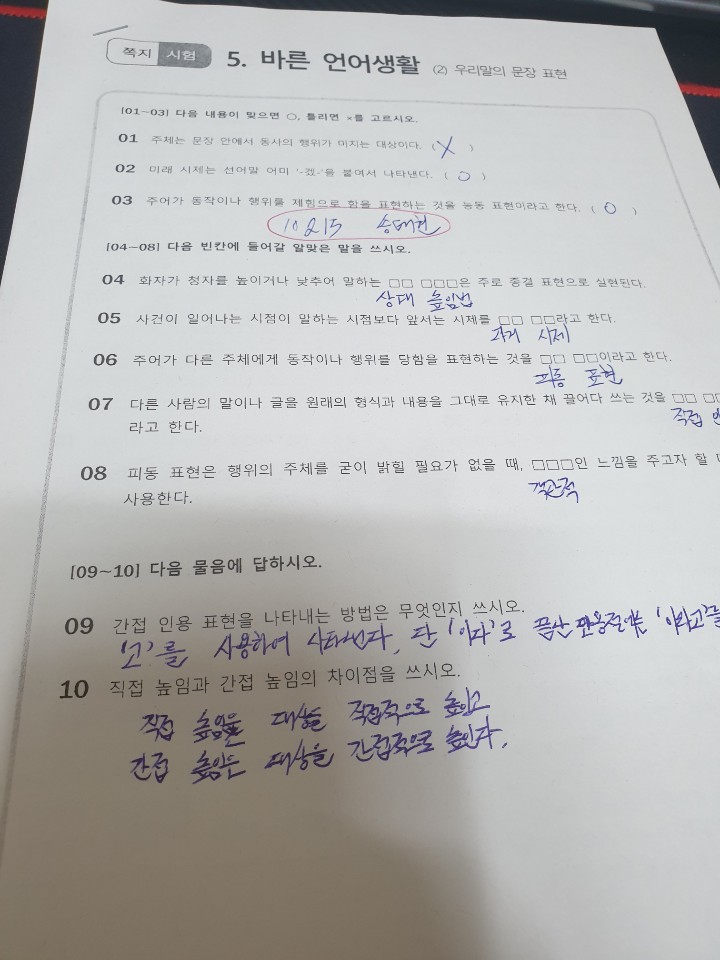 쪽지 시험 5. 바른 언어생활 (2) 우리말의 문장 표현
[01~03] 다음 내용이 맞으면 ○, 틀리면 ×를 고르시오.
01 주체는 문장 안에서 동사의 행위가 미치는 대상이다. ( X )
02 미래 시제는 선어말 어미 '-겠-'을 붙여서 나타낸다. ( O )
03 주어가 동작이나 행위를 제힘으로 함을 표현하는 것을 능동 표현이라고 한다. ( O )
10215 송태헌
[04~08] 다음 빈칸에 들어갈 알맞은 말을 쓰시오.
04 화자가 청자를 높이거나 낮추어 말하는 □□ □□□은 주로 종결 표현으로 실현된다.
상대 높임법
05 사건이 일어나는 시점이 말하는 시점보다 앞서는 시제를 □□ □□라고 한다.
과거 시제
06 주어가 다른 주체에게 동작이나 행위를 당함을 표현하는 것을 □□ □□이라고 한다.
피동 표현
07 다른 사람의 말이나 글을 원래의 형식과 내용을 그대로 유지한 채 끌어다 쓰는 것을 □□ □□
직접
라고 한다.
08 피동 표현은 행위의 주체를 굳이 밝힐 필요가 없을 때, □□□인 느낌을 주고자 할
객관적
사용한다.
[09~10] 다음 물음에 답하시오.
09 간접 인용 표현을 나타내는 방법은 무엇인지 쓰시오.
'고'를 사용하여 나타낸다. 단 '이다'로 끝난 '이라고'를
10 직접 높임과 간접 높임의 차이점을 쓰시오.
직접 높임은 대상을 직접적으로 높이고
간접 높임은 대상을 간접적으로 높인다.